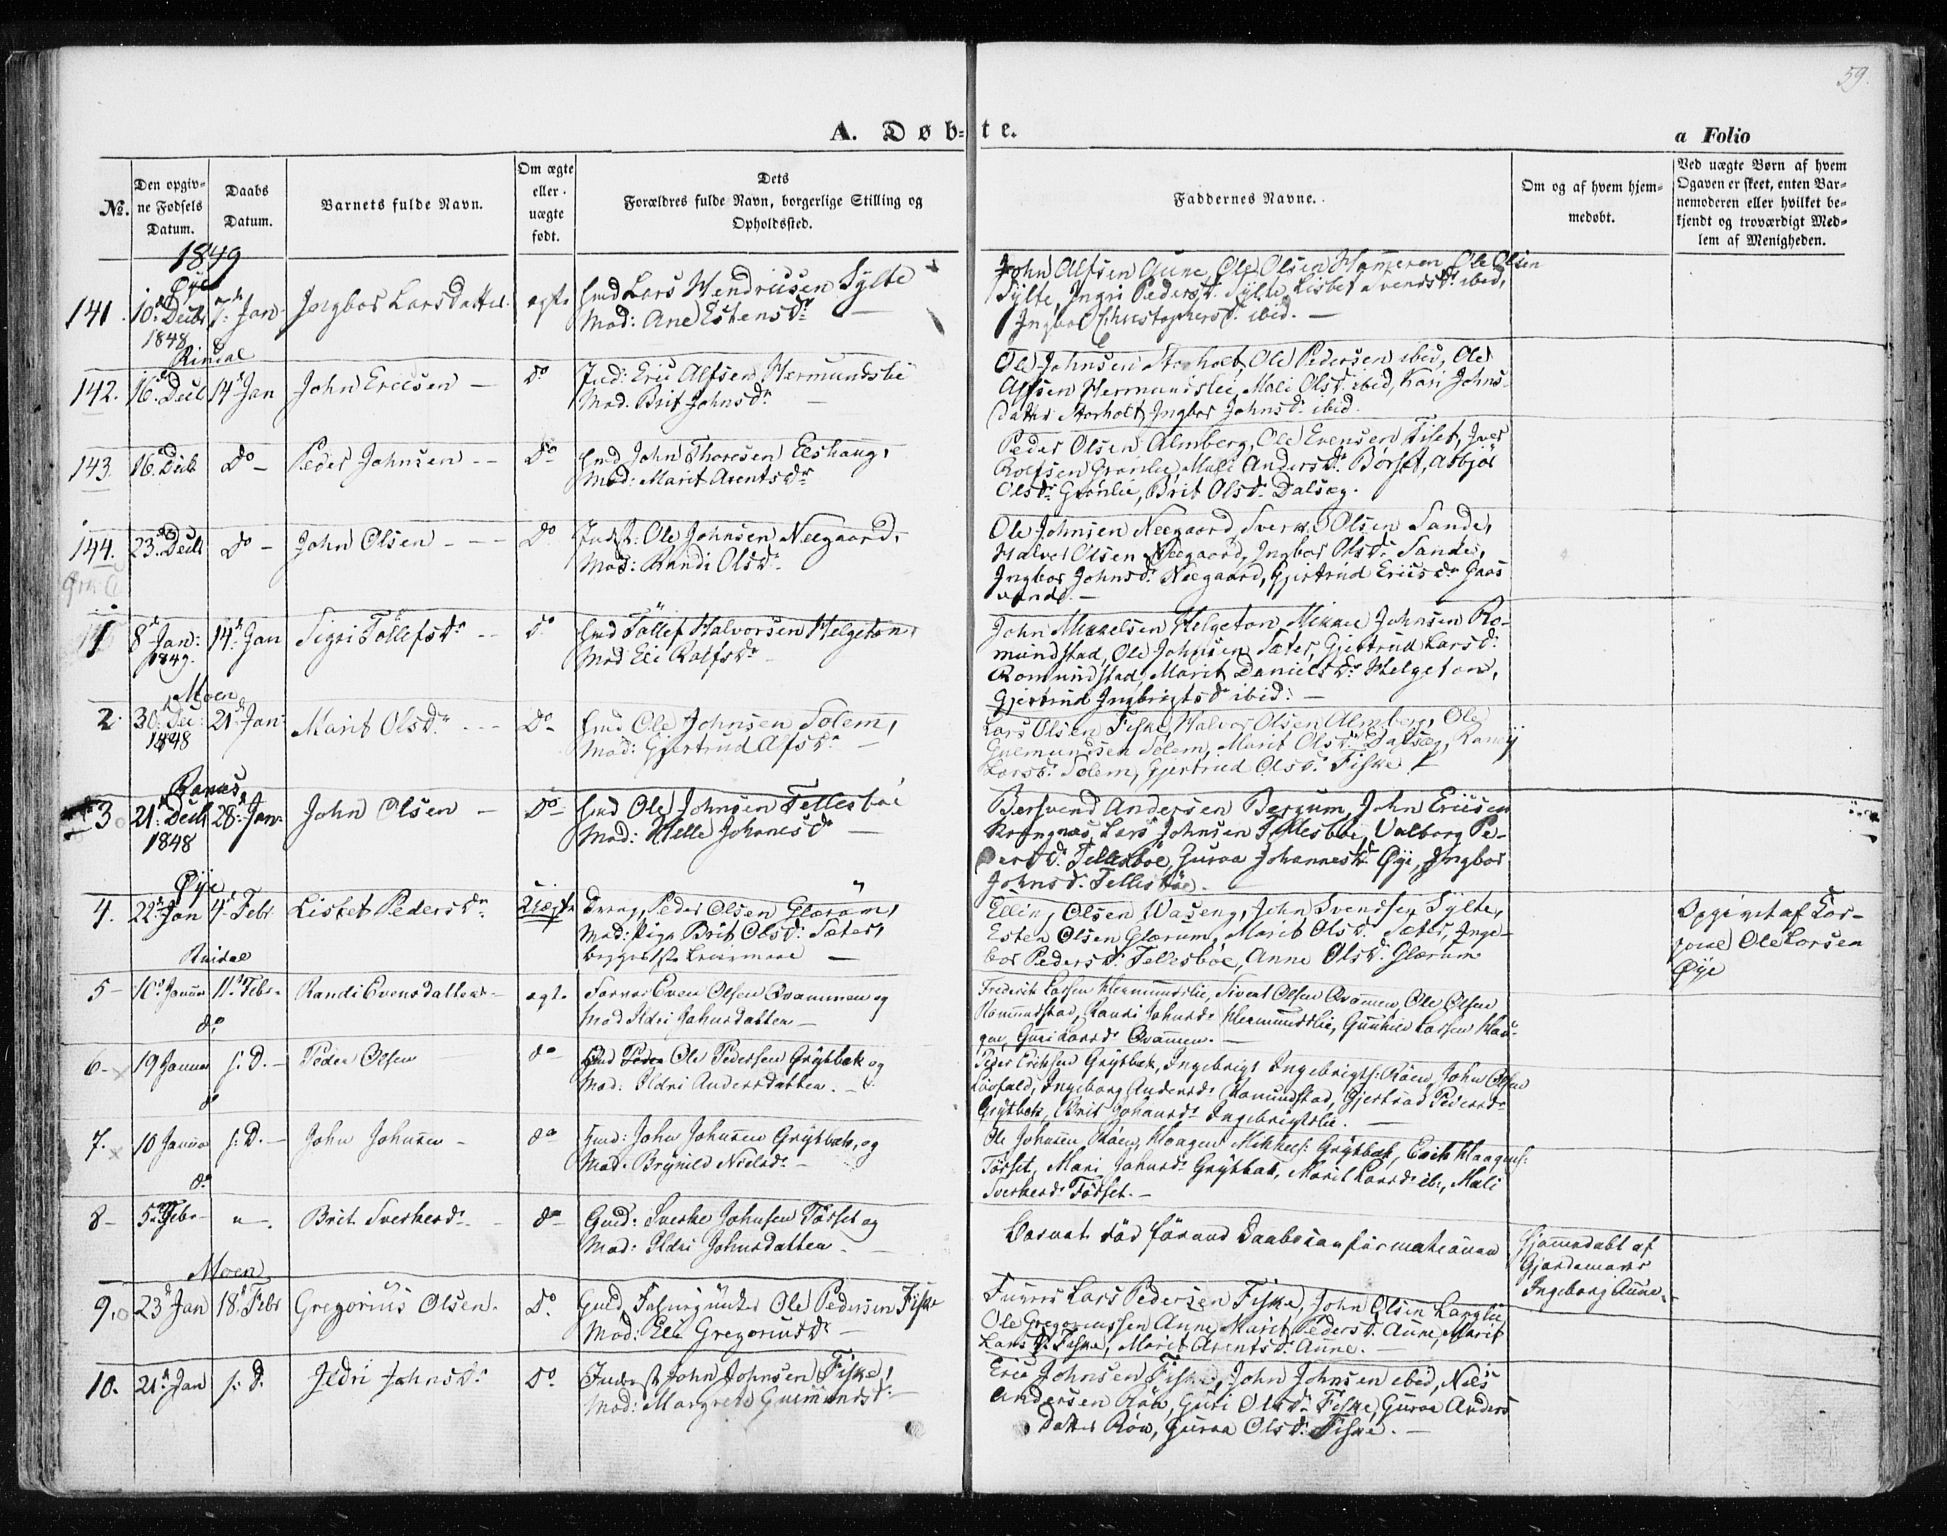 59.
A. Døb- te.
a Folio
№.
Den opgiv-
ne Fødsels
Datum.
Daabs
Datum.
Barnets fulde Navn.
Om ægte
eller
uægte
født.
Dets
Forældres fulde Navn, borgerlige Stilling og
Opholdssted.
Faddernes Navne.
Om og af hvem hjem-
medøbt.
Ved uægte Børn af hvem
Opgaven er skeet, enten Bar-
nemoderen eller hvilket be-
kjendt og troværdigt Med-
lem af Menigheden.
1849
Øye
141. 10de Decbr 7de Jan. Ingbor Larsdatter. ægte Gmd Lars Hendricsen Sylte
1848 Mod: Ane Estensdr —
John Alfsen Aune, Ole Olsen, Ole Olsen
Sylte, Ingri Pedersdr. Sylte, Lisbet Svendsdr ibid,
Ingbor Christophersdr. ibid. —
Rindal
142. 16de Decb 14de Jan John Ericsen — Do Ind: Eric Alfsen Hermundslie
Mod. Brit Johnsdr —
Ole Johnsen Storholt, Ole Pedersen ibid, Ole
Alfsen Hermundslie, Mali Olsdr. ibid, Kari Johns-
datter Storholt, Ingbor Johnsdr ibid.
143. 16de Decb. Do — Peder Johnsen — Do Gmd John Thoresen Eeshaug,
Mod: Marit Arentsdr
Peder Olsen Almberg, Ole Evensen Fiset, Iver
Rolfsen Grønlie, Mali Andersdr. Børset, Asbjør
Olsdr Grønlie, Brit Olsdr. Dalsæg.
144. 23de Decb Do — John Olsen — Do Indst: Ole Johnsen Neegaard,
Mod: Randi Olsdr.
Ole Johnsen Neegaard, Sverke Olsen Sande,
Halvor Olsen Neegaard, Ingbor Olsdr. Sande,
Ingbor Johnsdr. Neegaard, Gjertrud Ericsdr Gaas
vand. —
1 8de Jan: 14de Jan Sigri Tøllefsdr — Do Gmd Tøllef Halvorsen Helgeton,
1849. Mod Eli Rolfsdr
John Mikkelsen Helgeton, Mikkel Johnsen Ro-
mundstad, Ole Johnsen Sæter, Gjertrud Larsdr.
Romundstad, Marit Danielsdr. Helgeton,
Gjertrud Ingbrigtsdr ibid. —
Moen
2. 30. Dec: 21de Jan Marit Olsdr. — Do Gmd Ole Johnsen Solem,
1848 Mod: Gjertrud Alfsdr —
Lars Olsen Fiske, Halvor Olsen Almberg, Ole
Gulmundsen Solem, Marit Olsdr. Dalsæg, Randi
Larsdr. Solem, Gjertrud Olsdr. Fiske.
Ranes
3 21de Decb 28de Jan. John Olsen — Do Gmd Ole Johnsen Tellesbøe
1848 Mod: Helle Johnesdr —
Bersvend Andersen Bergum, John Ericsen
Krangnæs, Lars Johnsen Tellesbøe, Valborg Pe-
dersdr. Tellesbøe, Guroa Johannesdr. Øye, Ingbor
Johnsdr. Tellesbøe.
Øye
4. 22de Jan 4de Febr Lisbet Pedersdr. Uægte Dræng, Peder Olsen Glærum,
Mod: Pige Brit Olsdr. Sæter,
begges 1ste Leiermaal —
Elling Olsen Waseng, John Svendsen Sylte,
Esten Olsen Glærum, Marit Olsdr. Sæter, Inge-
bor Pedersdr. Tellesbøe, Anne Olsdr. Glærum
Opgivet af Cor-
poral Ole Larsen
Øye
Rindal
5 — 10de Januar 11te Febr. Randi Evensdatter — ægte Forvar Even Olsen Qvammen og
Mod Ildri Johnsdatter —
Frederik Larsen Hermundslie, Sivert Olsen Qvamen, Ole Olsen
Romundstad, Randi Johnsdr Hermundslie, Gunhild Larsen Hau-
gen, Guri Larsdr Qvamen. —
do
6 — 19 Januar s: D. — Peder Olsen do Gmd Ole Pedersen Grytbæk og
Mod: Ildri Andersdatter. —
Peder Eriksen Grytbæk, Ingebrigt Ingebrigts: Røen, John Olsen
Løefald, Ingeborg Andersdr Romundstad, Gjertrud Pedersdr
Grytbæk, Brit Johansdr Ingebrigtslie. —
do
7. 10 Januar s: D. — John Johnsen — do Gmd: John Johnsen Grytbæk, og
Mod. Brynild Nielsdr —
Ole Johnsen Røen, Haagen Mikkels: Grytbæk, Erik Haagens:
Tørset, Mari Johnsdr Grytbæk, Marit Larsdr ib:, Mali
Sverkesdr Tørset. —
do
8 — 5te Febr. — Brit Sverkesdr — do Gmd: Sverke Johnsen Tørset og
Mod: Ildri Johnsdatter —
Barnet død førend Daabsconfirmationen
Hjemmedøbt af
Gjordemoder
Ingeborg Aune.
Moen
9. 23de Jan 18de Febr Gregorius Olsen. Do. Gmd Ole Pedersen Fiske
Mod: Eli Gregoriusdr —
Lars Pedersen Fiske, John Olsen Langlie
Ole Gregoriussen Aune, Marit Pedersdr. Aune, Marit
Larsdr. Fiske, Marit Arentsdr. Aune. —
10. 21de Jan s: D. Ildri Johnsdr Do. Inderst John Johnsen Fiske,
Mod: Margrete Gulmundsdr.
Eric Johnsen Fiske, John Johnsen ibid, Nils
Andersen Røv, Guri Olsdr. Fiske, Guroa Anders
Datter Røv, Guroa Olsdr. Fiske. —